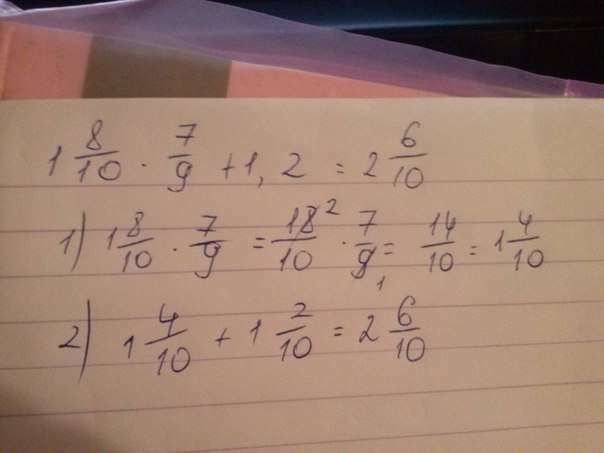 1 8/10 · 7/9 + 1,2 = 2 6/10
1) 1 8/10 · 7/9 = 18²/10 · 7/9₁ = 14/10 = 1 4/10
2) 1 4/10 + 1 2/10 = 2 6/10